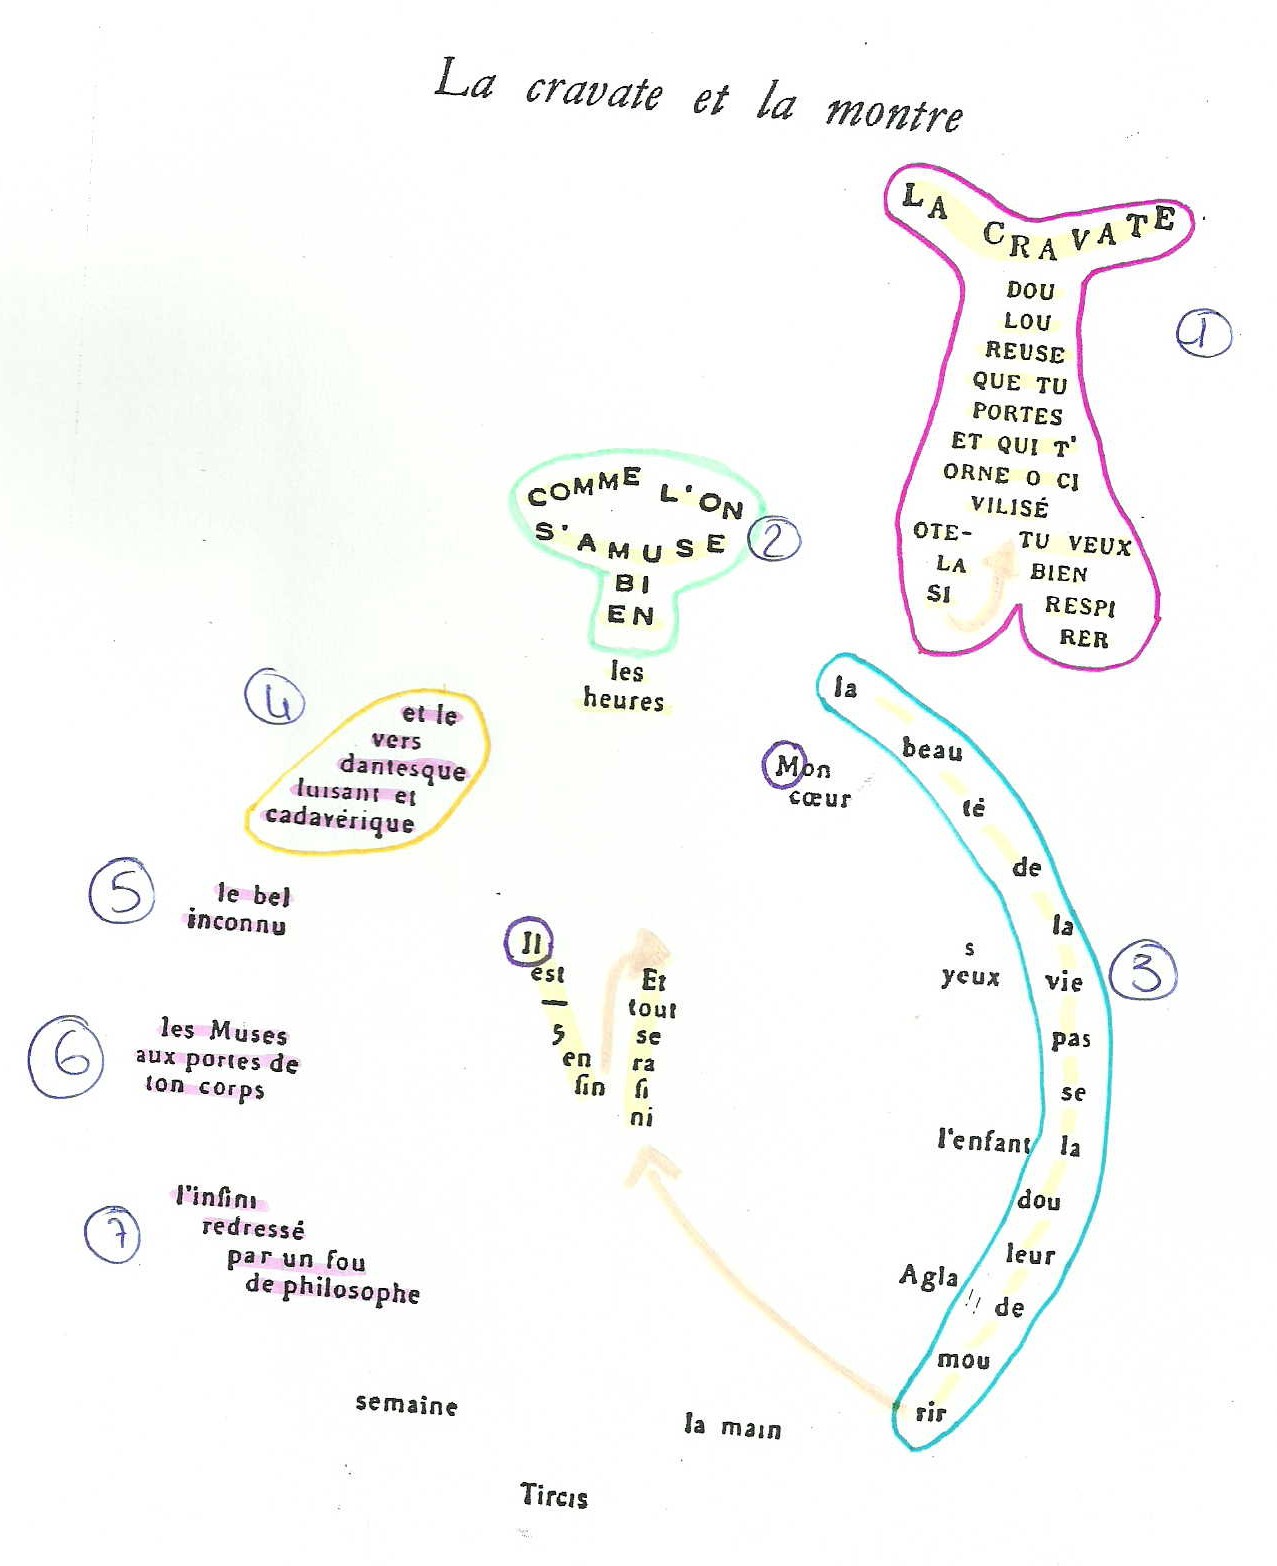 La cravate et la montre
LA CRAVATE
DOU
LOU
REUSE
QUE TU
PORTES
ET QUI T'
ORNE O CI
VILISÉ
OTE-
LA
SI
TU VEUX
BIEN
RESPI
RER
1
COMME L'ON
S'AMUSE
BI
EN
2
les
heures
la
beau
té
de
la
vie
pas
se
la
dou
leur
de
mou
rir
3
Mon
cœur
s
yeux
l'enfant
Agla
la main
Tircis
semaine
4
et le
vers
dantesque
luisant et
cadavérique
5
le bel
inconnu
6
les Muses
aux portes de
ton corps
7
l'infini
redressé
par un fou
de philosophe
Il
est
—
5
en
fin
Et
tout
se
ra
fi
ni